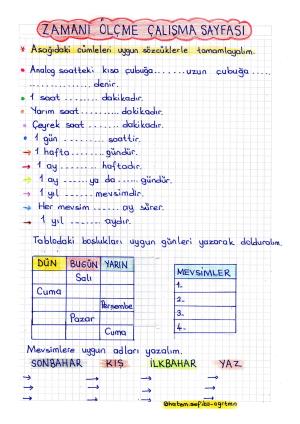 ZAMANI ÖLÇME ÇALIŞMA SAYFASI
* Aşağıdaki cümleleri uygun sözcüklerle tamamlayalım.
• Analog saatteki kısa çubuğa.......uzun çubuğa......
............. denir.
• 1 saat ........ dakikadır.
• Yarım saat ....... dakikadır.
• Çeyrek saat ....... dakikadır.
• 1 gün ......... saattir.
→ 1 hafta ........ gündür.
→ 1 ay ........ haftadır.
→ 1 ay ....... ya da ...... gündür.
→ 1 yıl ........ mevsimdir.
→ Her mevsim ..... ay sürer.
→ 1 yıl ........ aydır.
Tablodaki boşlukları uygun günleri yazarak dolduralım.
DÜN BUGÜN YARIN
Salı
Cuma
Perşembe
Pazar
Cuma
MEVSİMLER
1.
2.
3.
4.
Mevsimlere uygun adları yazalım.
SONBAHAR KIŞ İLKBAHAR YAZ
→ → → →
→ → → →
→ → → →